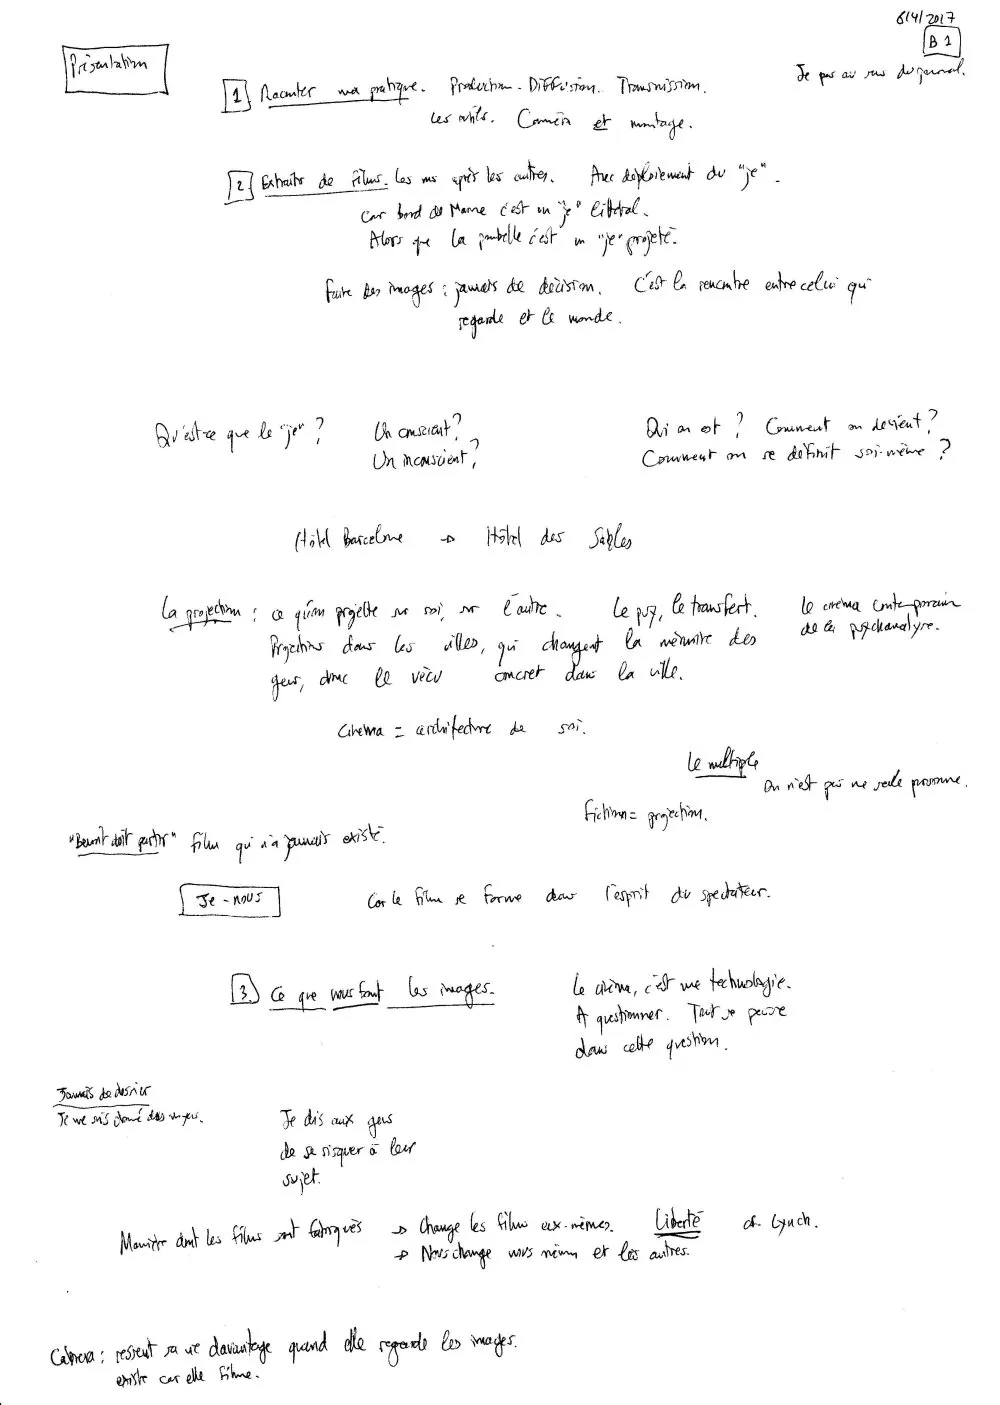 6/4/2017
B 1
Présentation
Je pas au sens du journal.
1 Raconter ma pratique. Production - Diffusion. Transmission.
Les outils. Caméra et montage.
2 Extraits de films. Les uns après les autres. Avec déploiement du "je".
Car bord de Marne c'est un "je" littéral.
Alors que la poubelle c'est un "je" projeté.
Faire des images : jamais de décision. C'est la rencontre entre celui qui
regarde et le monde.
Qu'est-ce que le "je" ? Un conscient ? Qui on est ? Comment on devient ?
Un inconscient ? Comment on se définit soi-même ?
Hôtel Barcelone → Hôtel des Sables
La projection : ce qu'on projette sur soi, sur l'autre. Le psy, le transfert. Le cinéma contemporain
de la psychanalyse.
Projections dans les villes, qui changent la mémoire des
gens, donc le vécu concret dans la ville.
Cinéma = architecture de soi.
Le multiple
On n'est pas une seule personne.
Fiction = projection.
"Benoît doit partir" film qui n'a jamais existé.
Je - nous Car le film se forme dans l'esprit du spectateur.
3. Ce que nous font les images. Le cinéma, c'est une technologie.
A questionner. Tout se passe
dans cette question.
Jamais de dossier
Je me suis donné des moyens.
Je dis aux gens
de se risquer à leur
sujet.
Manière dont les films sont fabriqués → Change les films eux-mêmes. Liberté cf. Lynch.
→ Nous change nous mêmes et les autres.
Cabrera : ressent sa vie davantage quand elle regarde les images.
existe car elle filme.